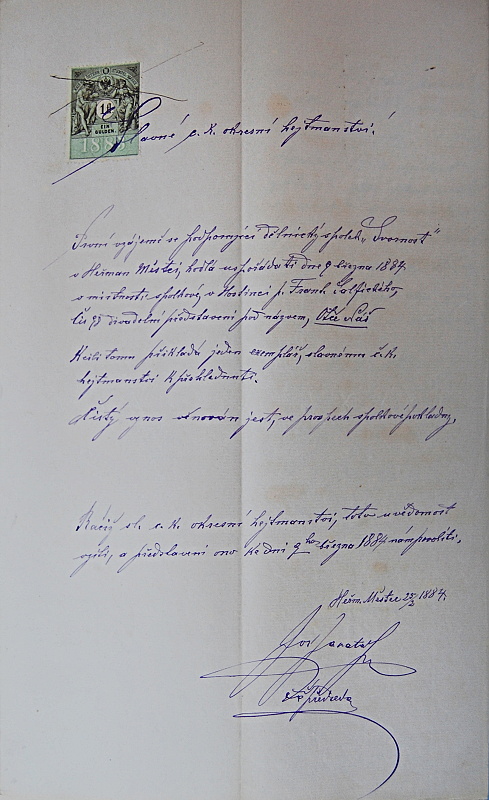 1
EIN
GULDEN
1883
Slavné c. k. okresní hejtmanství!
První vzájemě se podporující dělnický spolek „Svornost"
v Heřman Městci, hodlá uspořádati dne 9 března 1884
v místnosti spolkové, v Hostinci p. Frant.
Čís 98 divadelní představení pod názvem, Otče Náš
tomu přikládá jeden exemplář, slavnému c. k.
hejtmanství k přehlednutí.
Čistý výnos věnován jest, ve prospěch spolkové pokladny,
Račiž sl. c. k. okresní hejtmanství, toto u vědomost
vzíti, a představení ono ke dni 9ho března 1884 nám povoliti,
Heřm. Městec 25/2 1884.
předseda